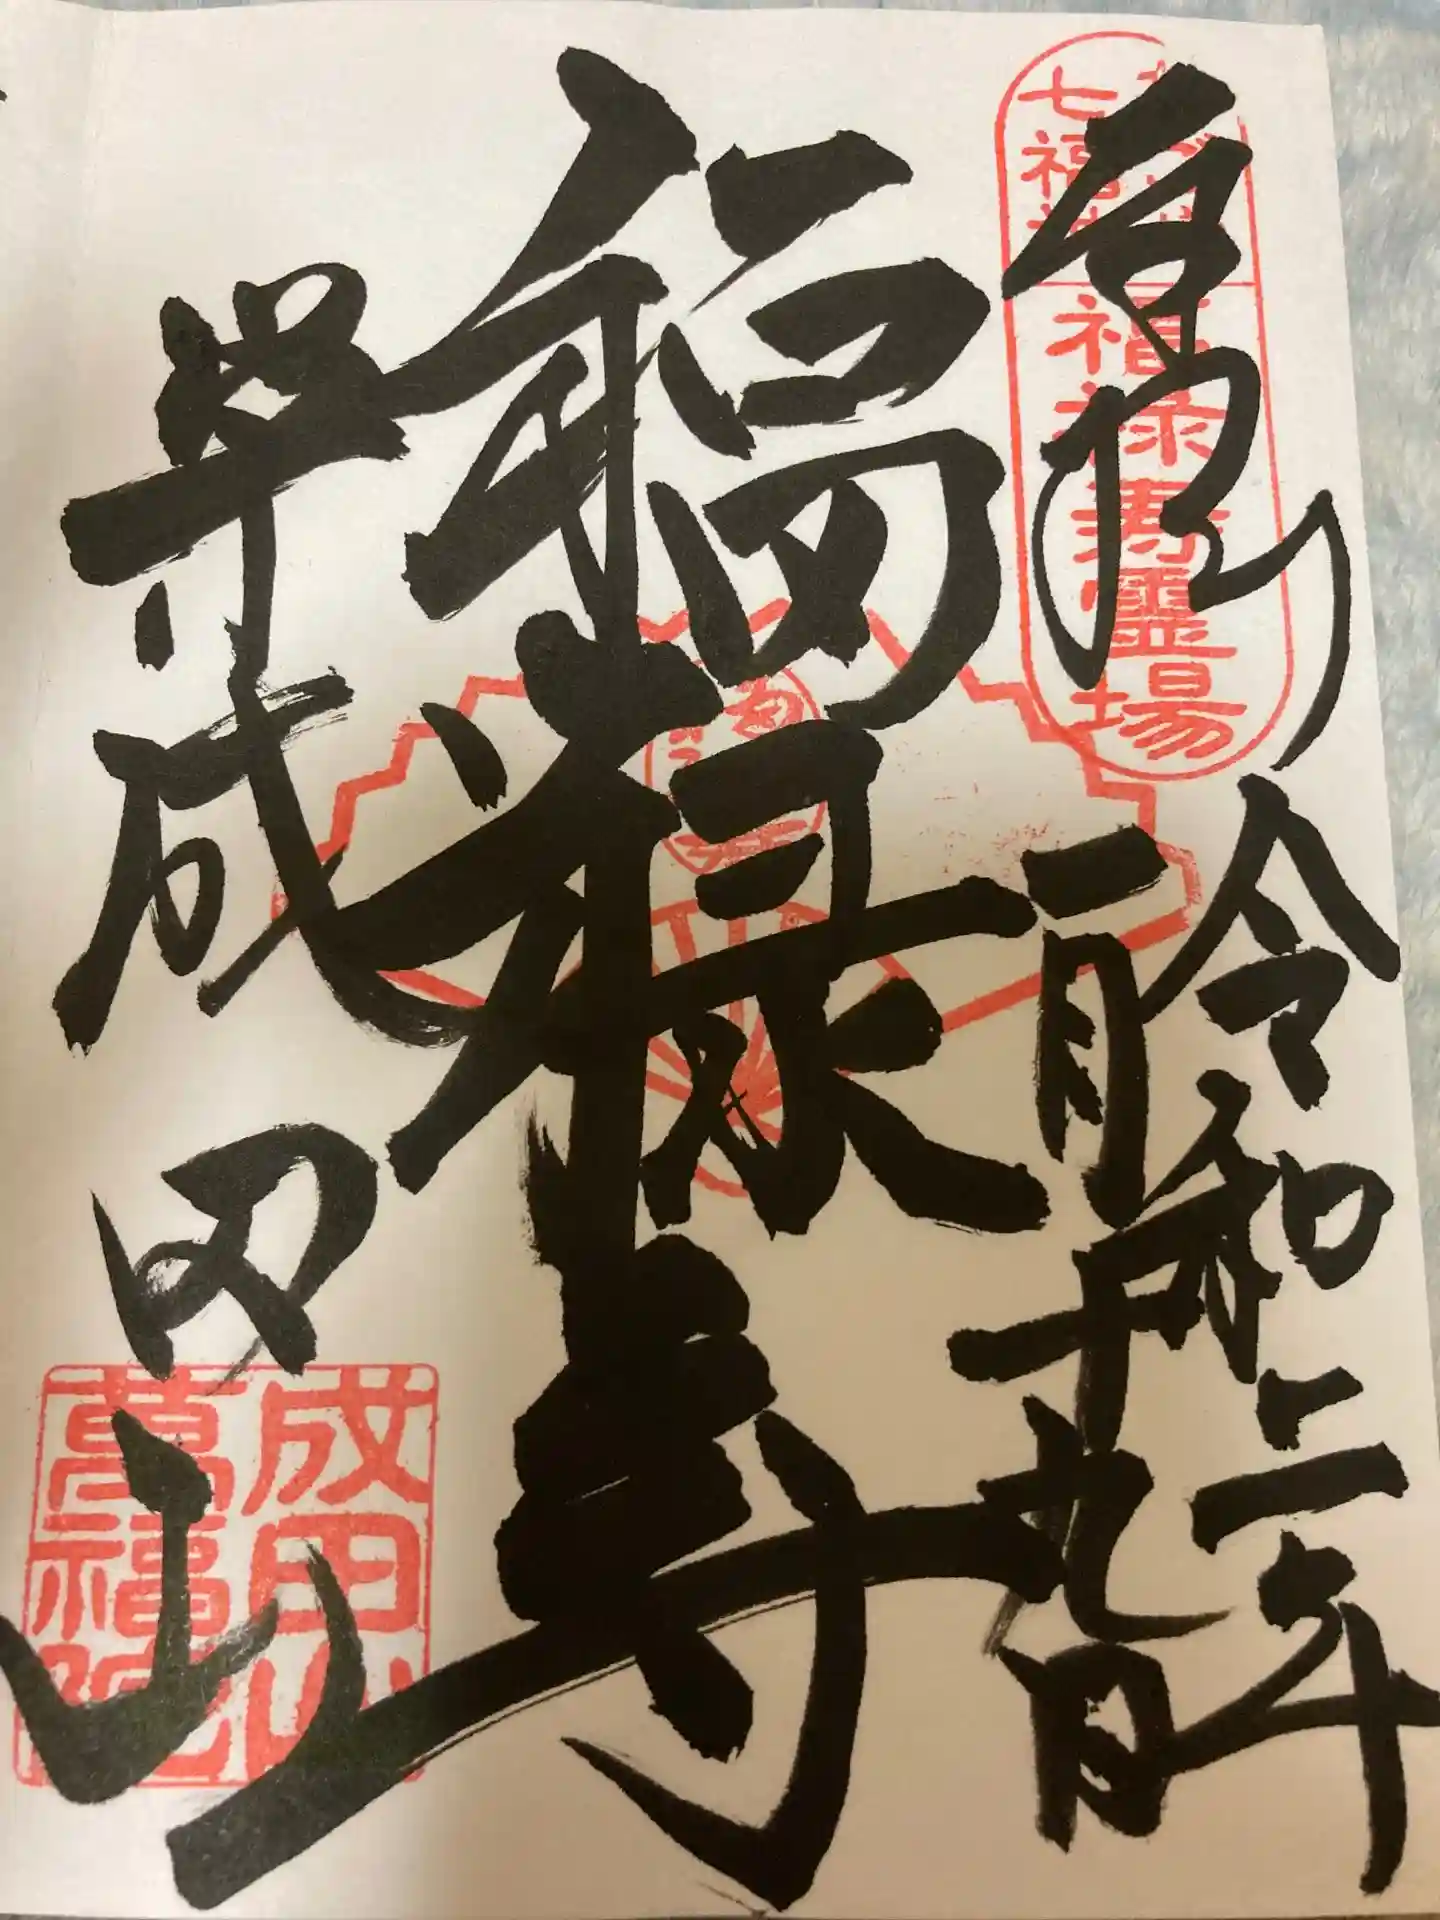 奉拝
七福神
福禄寿霊場
令和二年
一月十九日
福禄寿
早成田山
成田山
萬福院